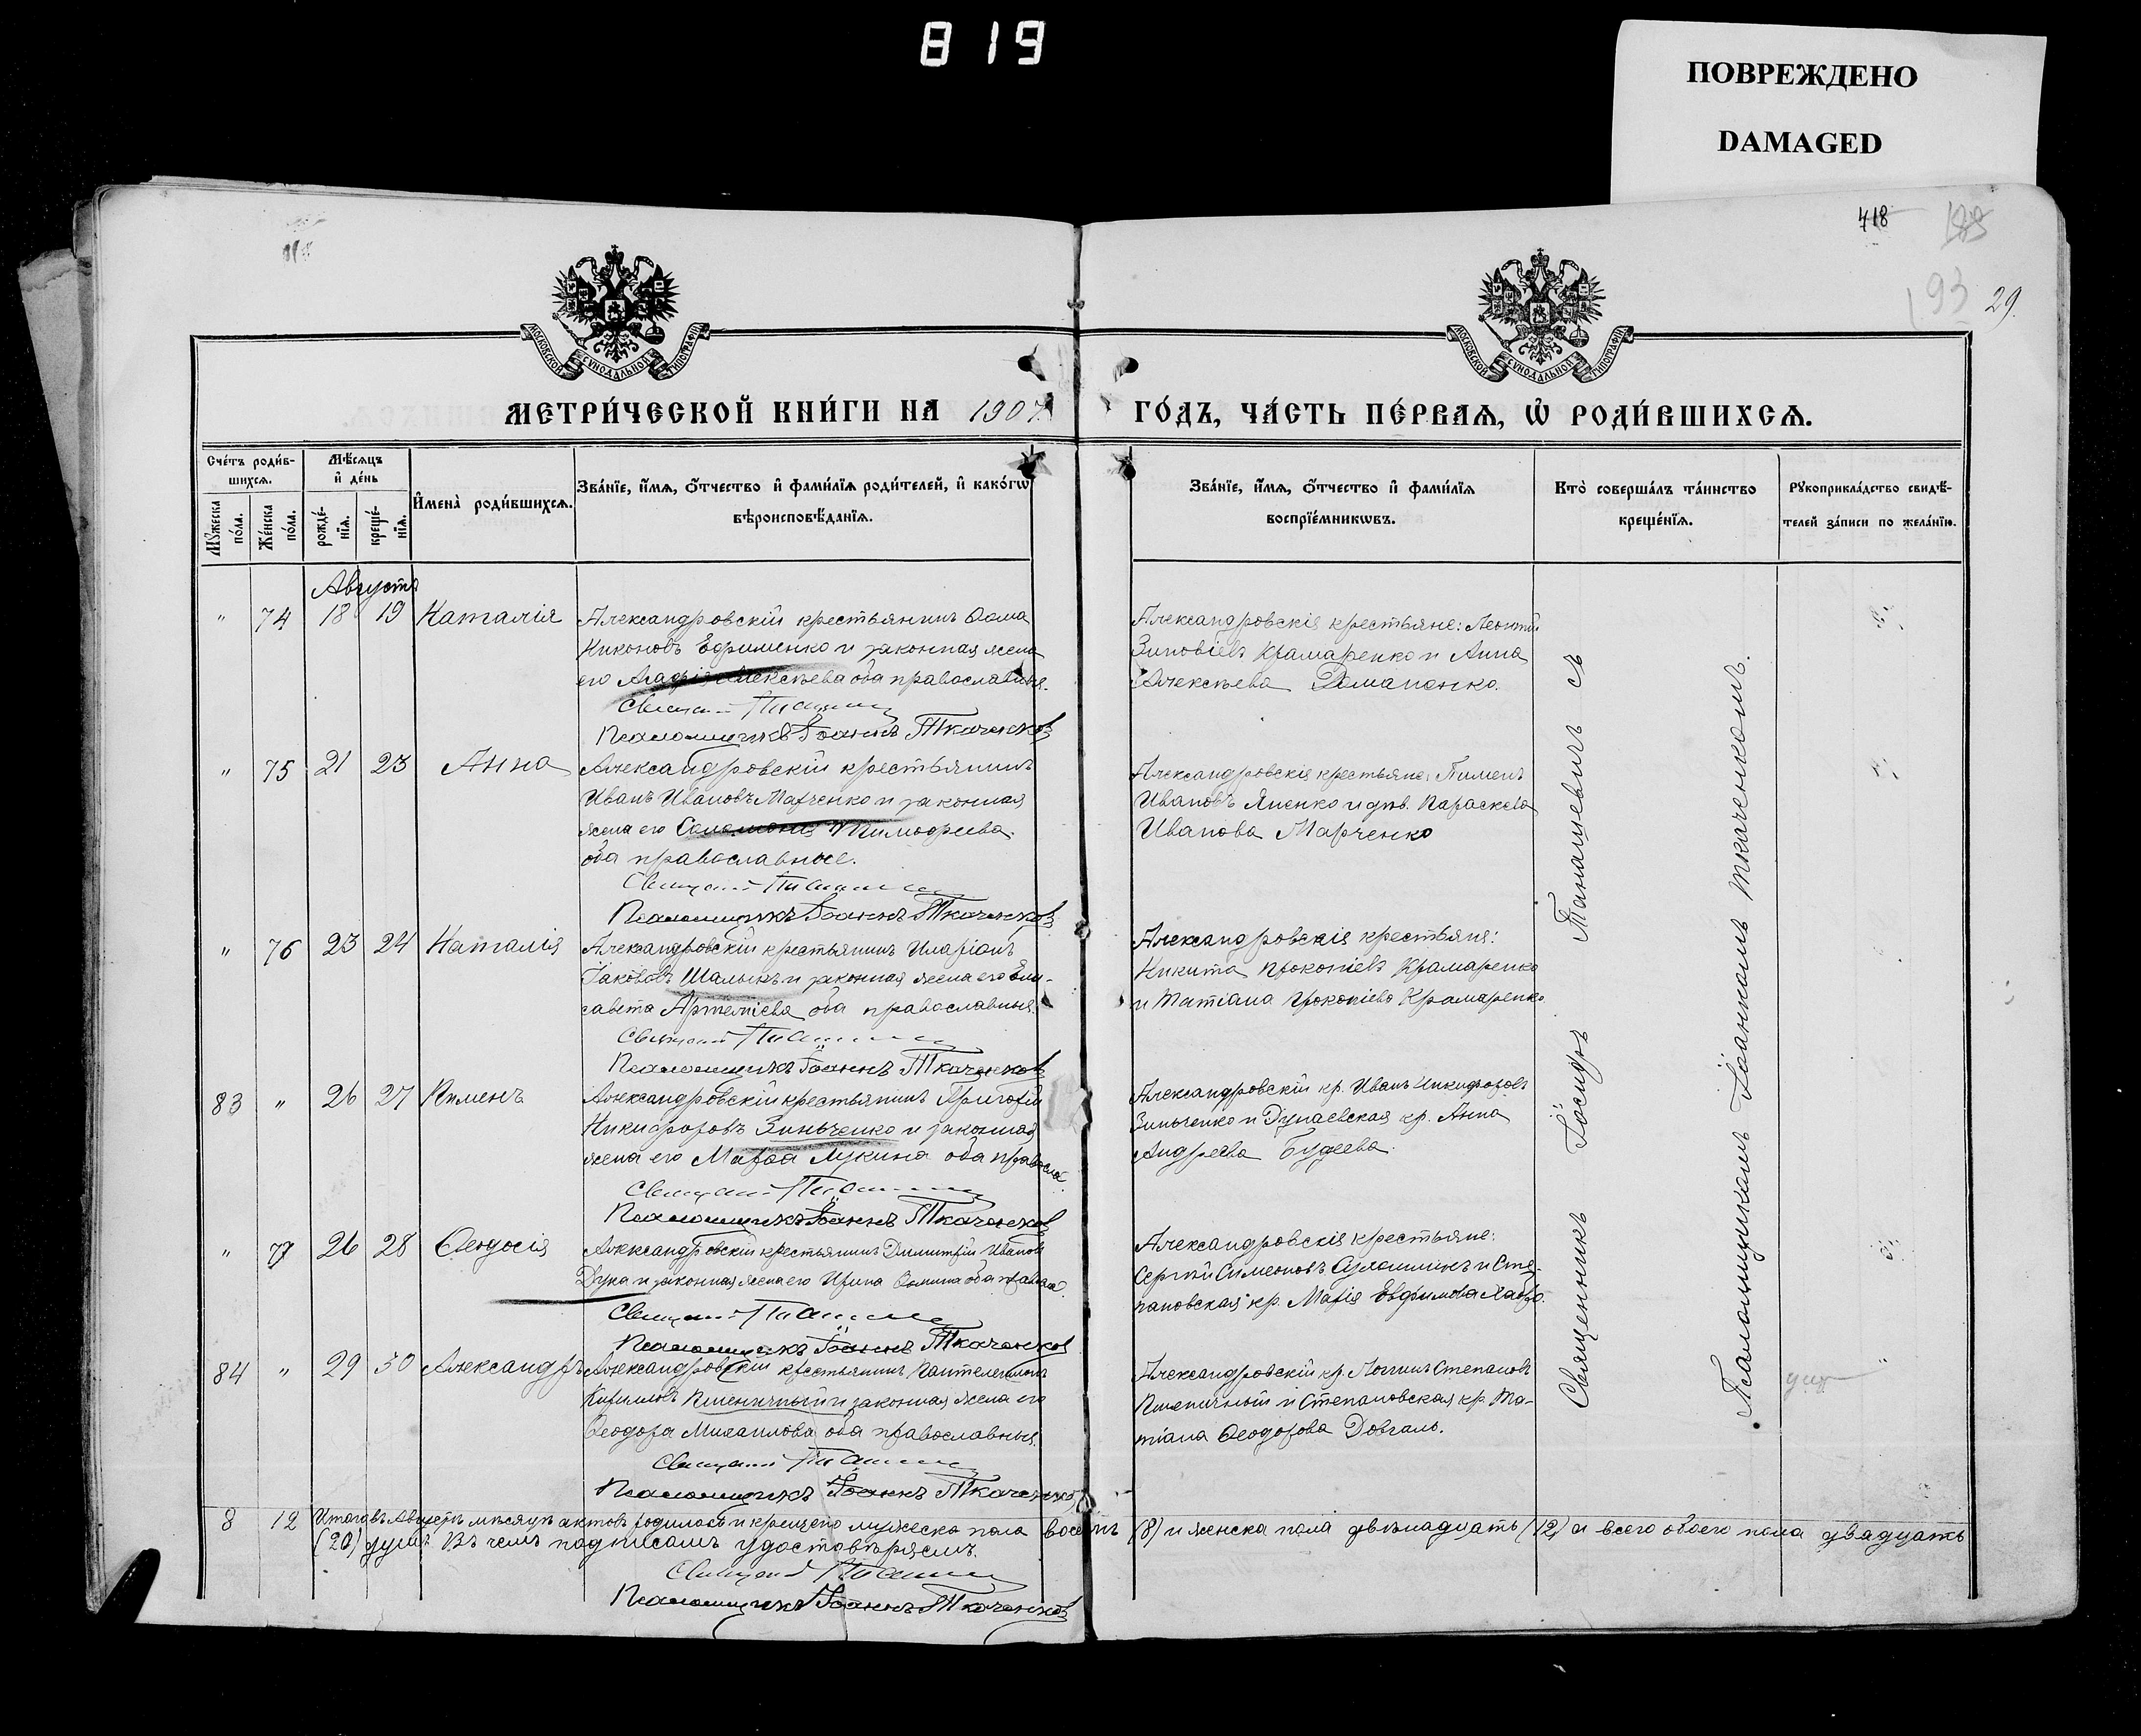 819
ПОВРЕЖДЕНО
DAMAGED
418
93
29.
МОСКОВСКОЙ СѴНОДАЛЬНОЙ ТИПОГРАФІИ
МОСКОВСКОЙ СѴНОДАЛЬНОЙ ТИПОГРАФІИ
МЕТРИ́ЧЕСКОЙ КНИ́ГИ НА 1907
ГО́ДЪ, ЧА́СТЬ ПЕ́РВАѦ, Ѡ РОДИ́ВШИХСѦ.
Сче́тъ роди́в-
шихсѧ.
Мѣ́сѧцъ
и҆ де́нь
Мꙋ́жеска по́ла.
Же́нска по́ла.
рожде́-
нїѧ.
креще́-
нїѧ.
И҆мена̀ роди́вшихсѧ.
Зва́нїе, и҆́мѧ, ѻ҆́тчество и҆ фами́лїѧ роди́телей, и҆ како́гѡ
вѣроисповѣ́данїѧ.
Зва́нїе, и҆́мѧ, ѻ҆́тчество и҆ фами́лїѧ
воспрїе́мникѡвъ.
Кто̀ соверша́лъ та́инство
креще́нїѧ.
Рꙋкоприкла́дство свидѣ́-
телей за́писи по жела́нїю.
Августъ
" 74 18 19 Наталія
Александровскій крестьянинъ Ѳома
Никоновъ Ефрименко и законная жена
его Агафія Алексѣева оба православные.
Священ
Псаломщикъ Іоаннъ Ткаченков
Александровскія крестьяне: Леонтій
Зиновіевъ Крамаренко и Анна
Алексѣева Доманенко.
" 75 21 23 Анна
Александровскій крестьянинъ
Иванъ Ивановъ Марченко и законная
жена его Соломонія Тимофеева.
оба православные.
Священ
Псаломщикъ Іоаннъ Ткаченков
Александровскія крестьяне: Пименъ
Ивановъ Яненко и дѣв. Параскева
Иванова Марченко
" 76 23 24 Наталія
Александровскій крестьянинъ Иларіонъ
Іаковъ Шалынъ и законная жена его Ели-
савета Артеміева оба православные.
Священ
Псаломщикъ Іоаннъ Ткаченков
Александровскія крестьяне:
Никита Прокопіевъ Крамаренко
и Татіана Прокопіева Крамаренко
83 " 26 27 Пименъ
Александровскій крестьянинъ Григорій
Никифоровъ Зинченко и законная
жена его Марѳа Лукина оба правосла
Священ
Псаломщикъ Іоаннъ Ткаченков
Александровскій кр. Иванъ Никифоровъ
Зинченко и Дунаевская кр. Анна
Андреева Будеева.
" 77 26 28 Ѳеодосія
Александровскій крестьянинъ Димитрій Ивановъ
Дука и законная жена его Ирина Ѳомина оба правосл.
Священ
Псаломщикъ Іоаннъ Ткаченков
Александровскія крестьяне:
Сергій Симеоновъ и Сте-
пановская кр. Марія Евфимова
84 " 29 30 Александръ
Александровскій крестьянинъ Пантелеимонъ
Кириловъ Пшеничный и законная жена его
Ѳеодора Михаилова оба православные.
Священ
Псаломщикъ Іоаннъ Ткаченков
Александровскій кр. Логинъ Степановъ
Пшеничный и Степановская кр. Та-
тіана Ѳеодорова Довгаль.
Священникъ Іосифъ Танащевичъ съ
Псаломщикомъ Іоанномъ Ткаченкомъ.
8 12 Итого въ Августѣ мѣсяцѣ актовъ родилось и крещено мужеска пола восемь (8) и женска пола двѣнадцать (12) а всего обоего пола двадцать
(20) душъ. Въ чемъ подписомъ удостовѣряемъ.
Священ
Псаломщикъ Іоаннъ Ткаченков